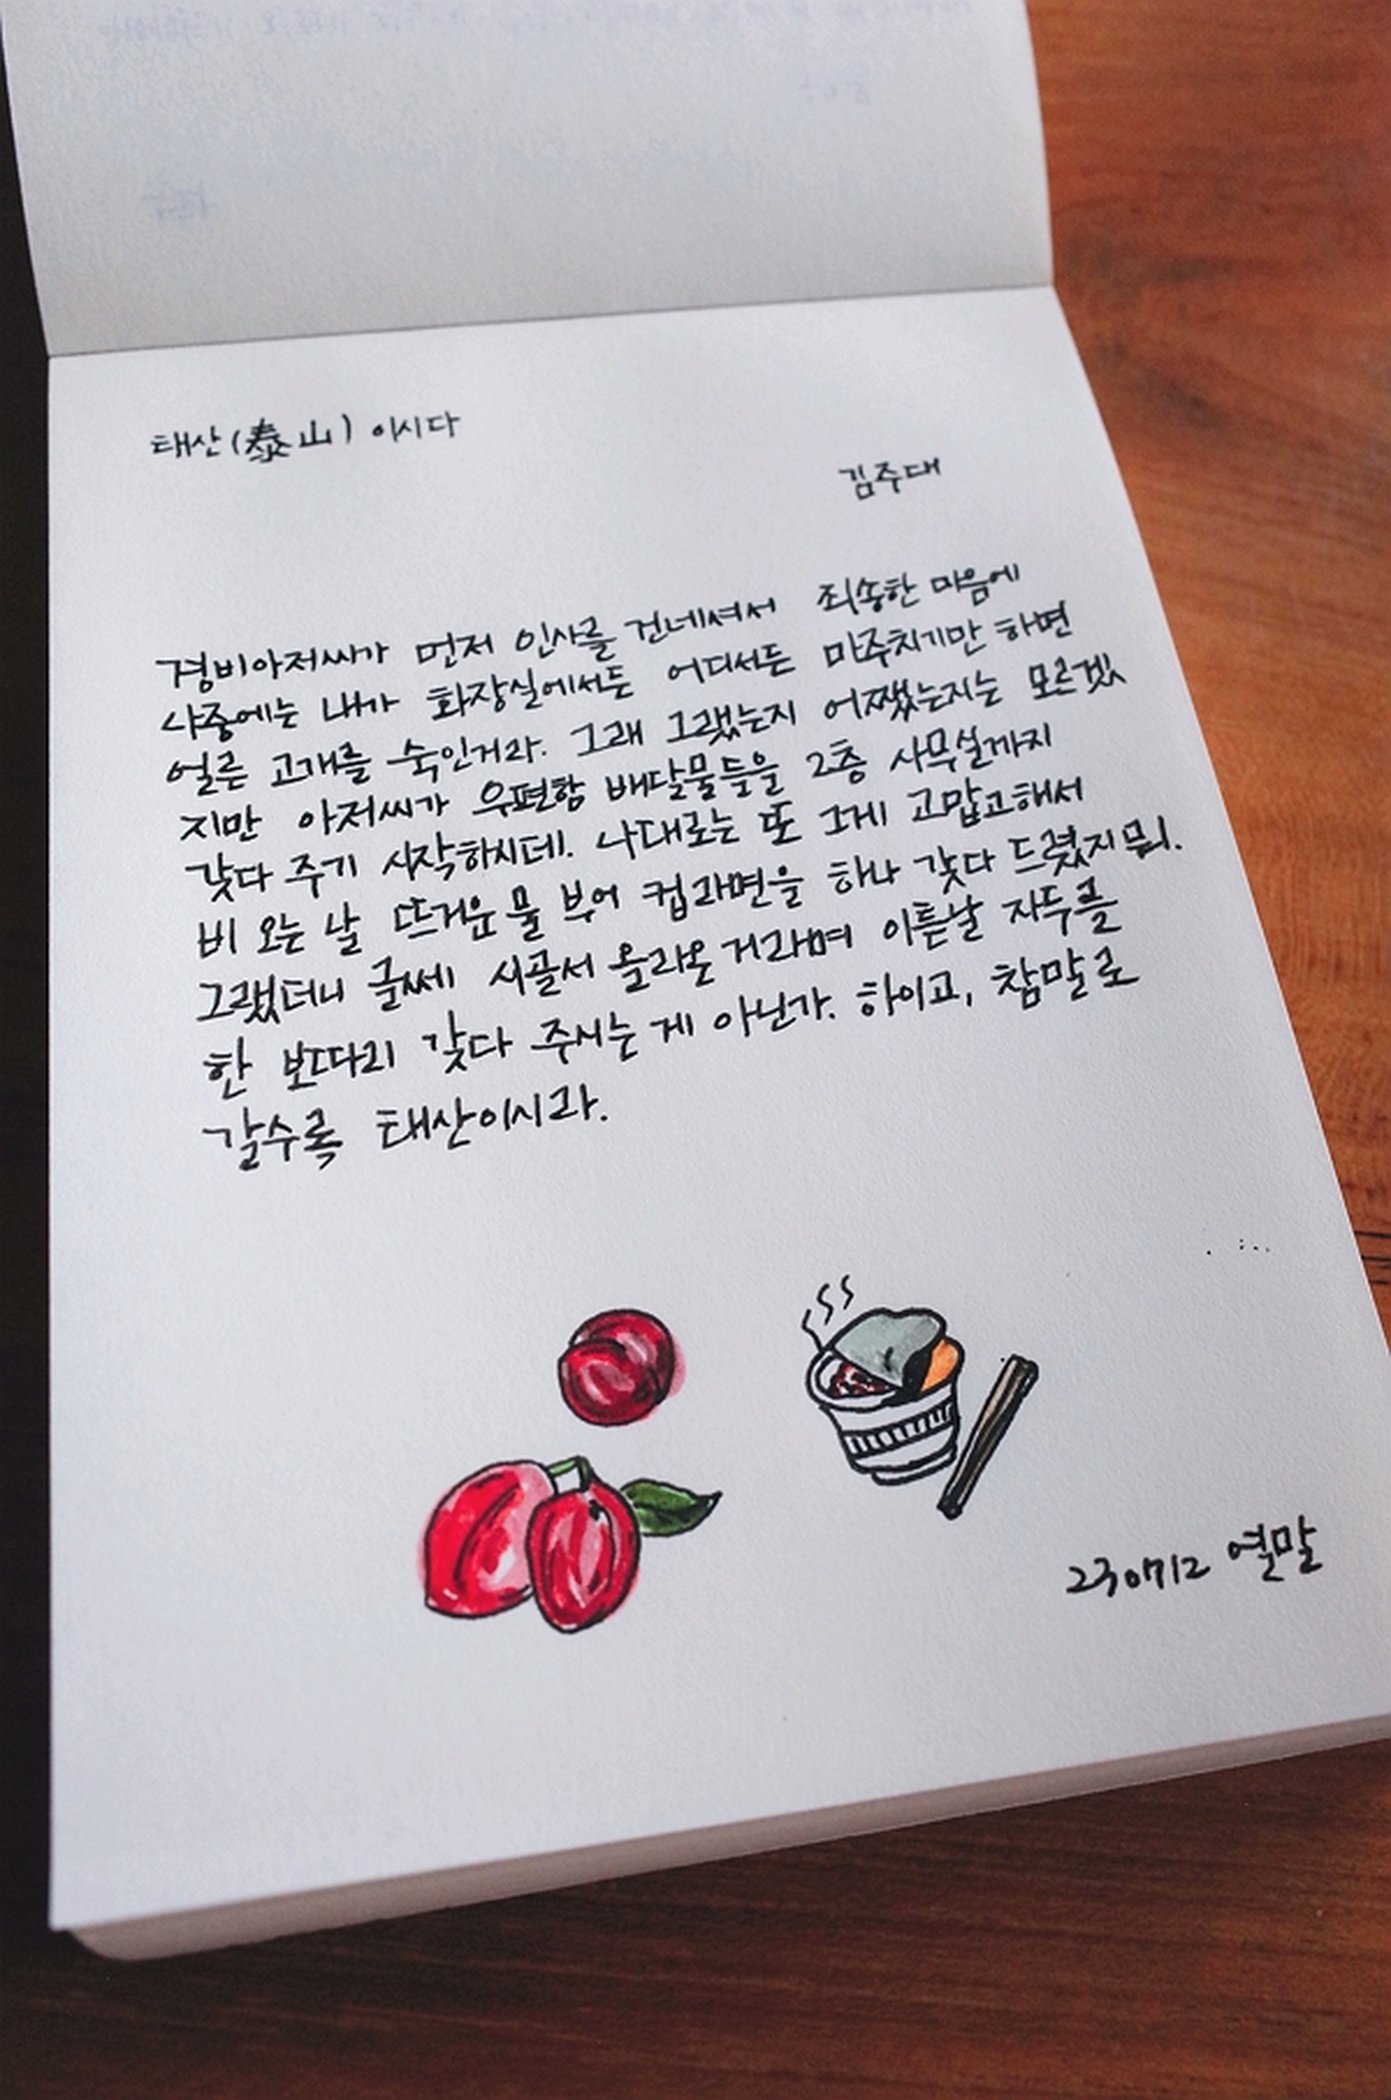 태산(泰山)이시다
김주대
경비아저씨가 먼저 인사를 건네셔서 죄송한 마음에
나중에는 내가 화장실에서든 어디서든 마주치기만 하면
얼른 고개를 숙인거라. 그래 그랬는지 어쨌는지는 모르겠
지만 아저씨가 우편함 배달물들을 2층 사무실까지
갖다 주기 시작하시데. 나대로는 또 그게 고맙고해서
비 오는 날 뜨거운 물 부어 컵라면을 하나 갖다 드렸지 뭐.
그랬더니 글쎄 시골서 올라온 거라며 이튿날 자두를
한 보따리 갖다 주시는 게 아닌가. 하이고, 참말로
갈수록 태산이시라.
230712 열말